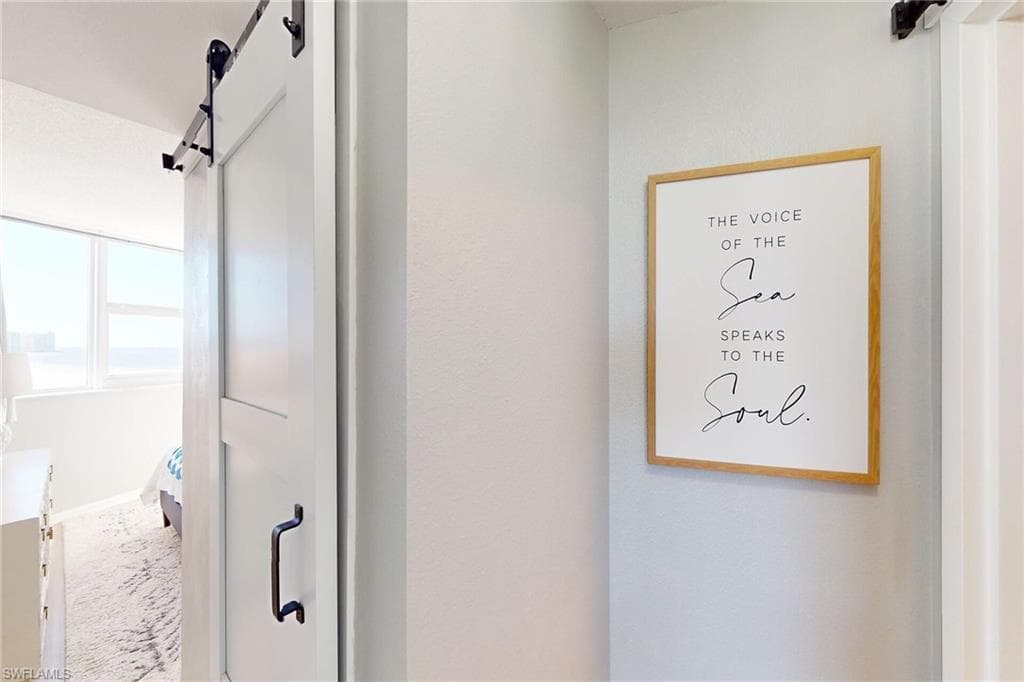 THE VOICE
OF THE
Sea
SPEAKS
TO THE
Soul.
SWFLAMLS